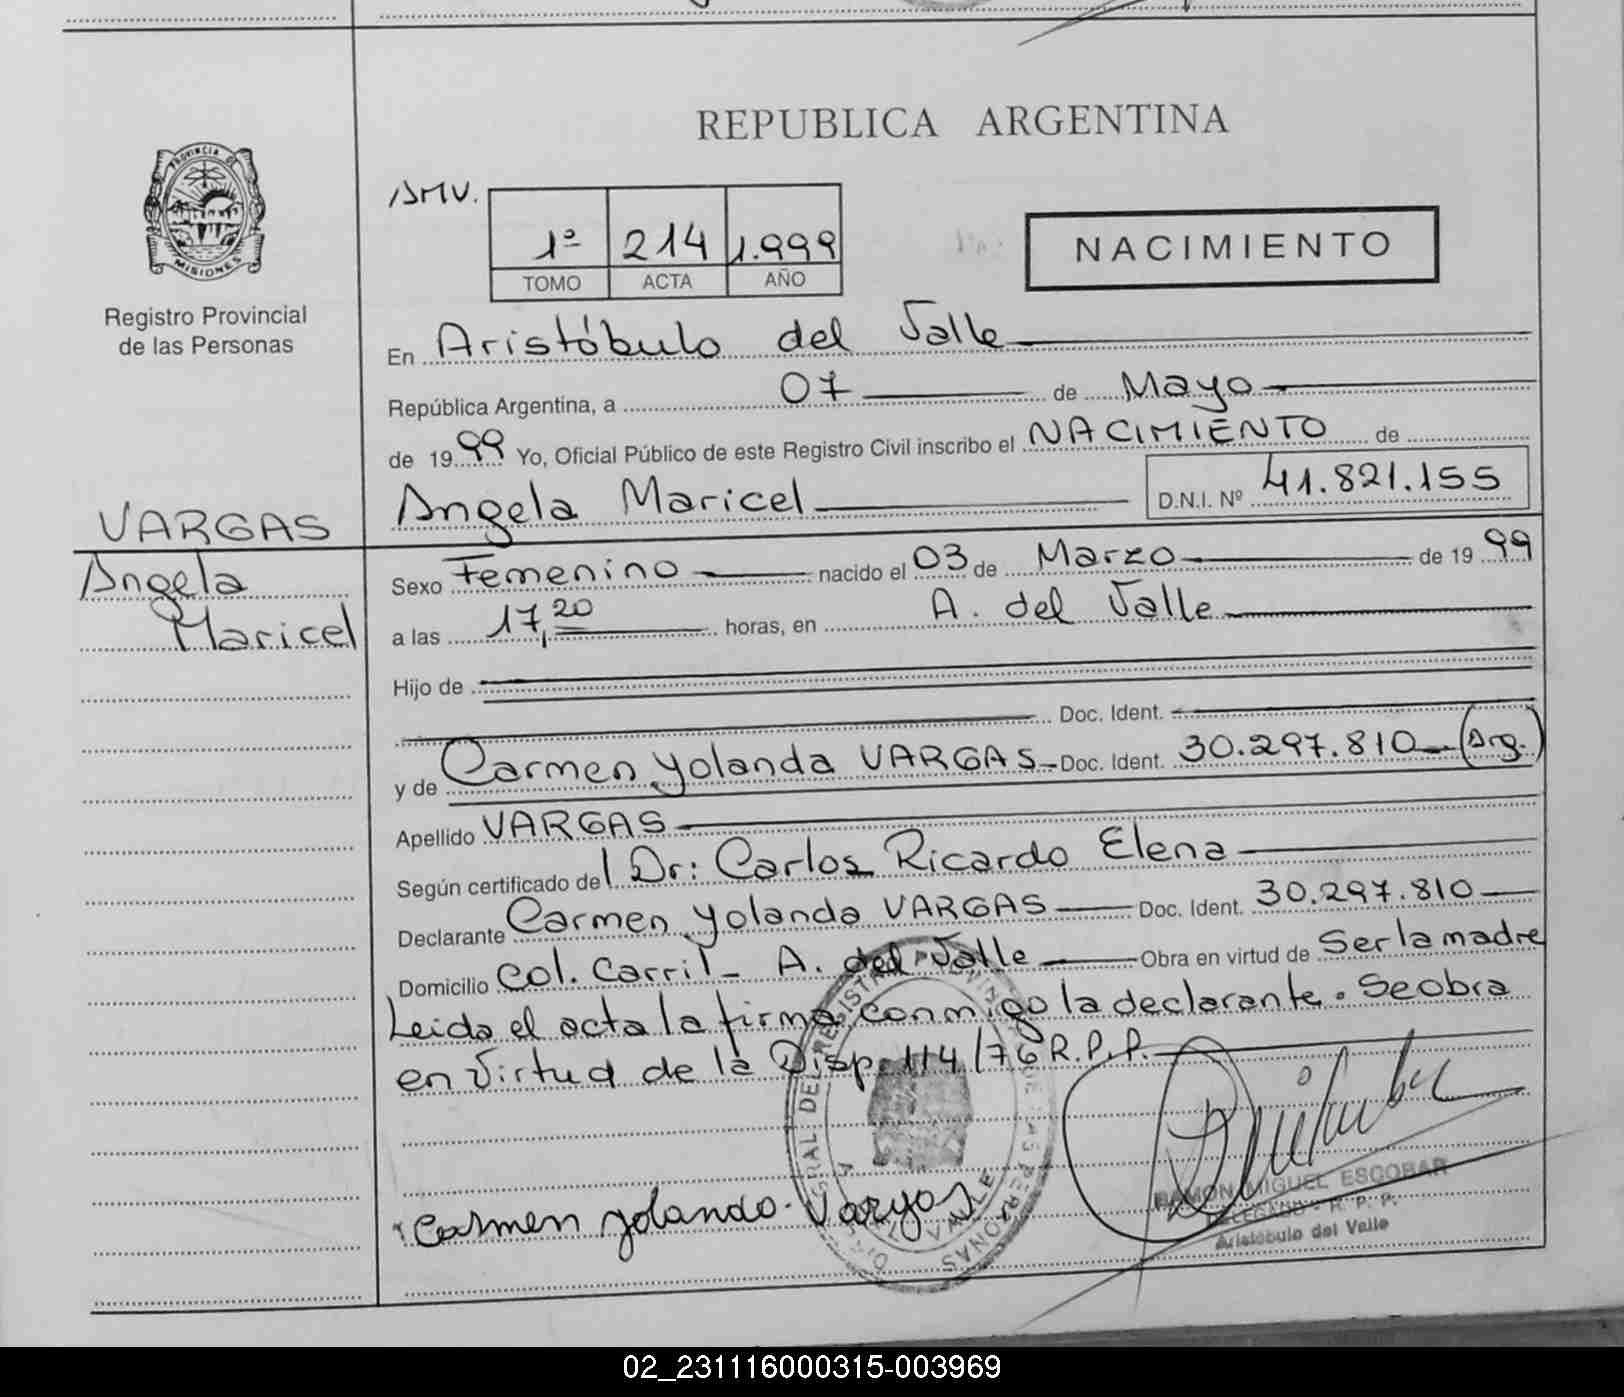 REPUBLICA ARGENTINA
PROVINCIA DE
MISIONES
Registro Provincial
de las Personas
1º 214 1.999
TOMO ACTA AÑO
NACIMIENTO
En Aristóbulo del Valle
República Argentina, a 07 de Mayo
de 1999 Yo, Oficial Público de este Registro Civil inscribo el NACIMIENTO de
Angela Maricel D.N.I. Nº 41.821.155
VARGAS
Angela
Maricel
Sexo Femenino nacido el 03 de Marzo de 1999
a las 17,20 horas, en A. del Valle
Hijo de
Doc. Ident.
y de Carmen Yolanda VARGAS Doc. Ident. 30.297.810 (Arg.)
Apellido VARGAS
Según certificado del Dr: Carlos Ricardo Elena
Declarante Carmen Yolanda VARGAS Doc. Ident. 30.297.810
Domicilio Col. Carril - A. del Valle Obra en virtud de Ser la madre
Leida el acta la firma conmigo la declarante. Se obra
en virtud de la Disp. 114/76 R.P.P.
Carmen yolanda Vargas
RAMON MIGUEL ESCOBAR
DELEGADO - R. P. P.
Aristóbulo del Valle
02_231116000315-003969